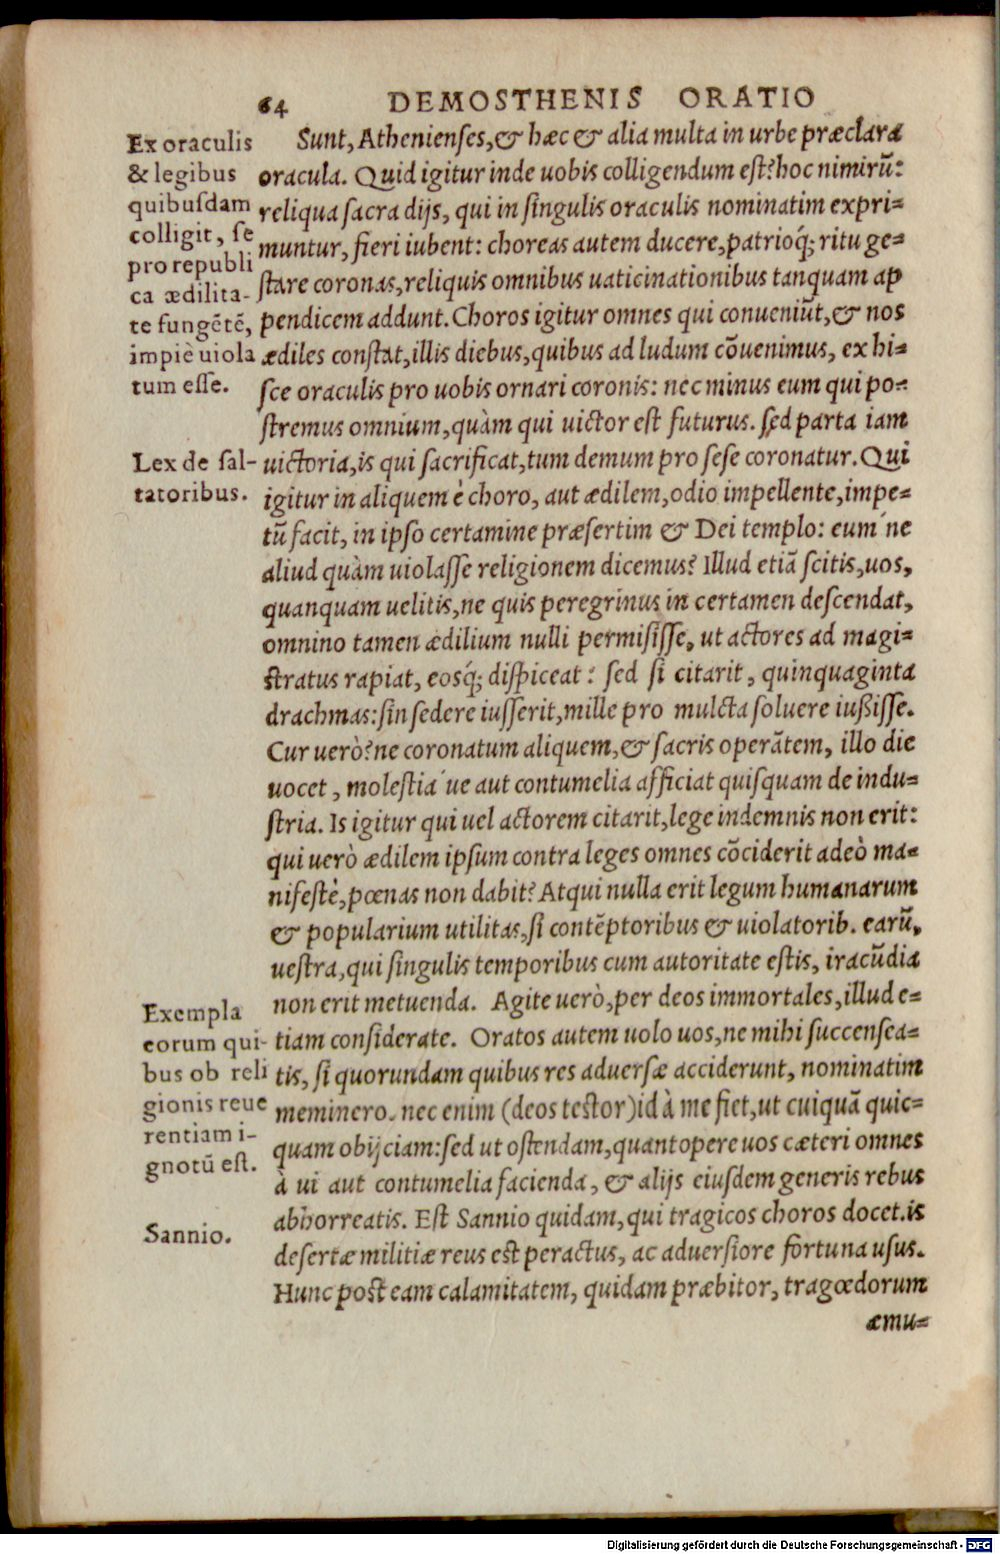 64 DEMOSTHENIS ORATIO
Ex oraculis
& legibus
quibuſdam
colligit, ſe
pro republi
ca ædilita-
te fungẽtẽ,
impiè uiola
tum eſſe.
Lex de ſal-
tatoribus.
Exempla
eorum qui-
bus ob reli
gionis reue
rentiam i-
gnotũ eſt.
Sannio.
Sunt, Athenienſes, & hæc & alia multa in urbe præclara
oracula. Quid igitur inde uobis colligendum eſt? hoc nimirũ:
reliqua ſacra dijs, qui in ſingulis oraculis nominatim expri-
muntur, fieri iubent: choreas autem ducere, patrioq́; ritu ge-
ſtare coronas, reliquis omnibus uaticinationibus tanquam ap
pendicem addunt. Choros igitur omnes qui conueniũt, & nos
ædiles conſtat, illis diebus, quibus ad ludum cõuenimus, ex hi-
ſce oraculis pro uobis ornari coronis: nec minus eum qui po-
ſtremus omnium, quàm qui uictor eſt futurus. ſed parta iam
uictoria, is qui ſacrificat, tum demum pro ſeſe coronatur. Qui
igitur in aliquem è choro, aut ædilem, odio impellente, impe-
tũ facit, in ipſo certamine præſertim & Dei templo: eum ́ne
aliud quàm uiolaſſe religionem dicemus? Illud etiã ſcitis, uos,
quanquam uelitis, ne quis peregrinus in certamen deſcendat,
omnino tamen ædilium nulli permiſiſſe, ut actores ad magi-
ſtratus rapiat, eosq́; diſpiceat: ſed ſi citarit, quinquaginta
drachmas: ſin ſedere iuſſerit, mille pro mulcta ſoluere iußiſſe.
Cur uerò? ne coronatum aliquem, & ſacris operãtem, illo die
uocet, moleſtia ́ue aut contumelia afficiat quiſquam de indu-
ſtria. Is igitur qui uel actorem citarit, lege indemnis non erit:
qui uerò ædilem ipſum contra leges omnes cõciderit adeò ma-
nifeſtè, pœnas non dabit? Atqui nulla erit legum humanarum
& popularium utilitas, ſi contẽptoribus & uiolatorib. earũ,
ueſtra, qui ſingulis temporibus cum autoritate eſtis, iracũdia
non erit metuenda. Agite uerò, per deos immortales, illud e-
tiam conſiderate. Oratos autem uolo uos, ne mihi ſuccenſea-
tis, ſi quorundam quibus res aduerſæ acciderunt, nominatim
meminero. nec enim (deos teſtor) id à me fiet, ut cuiquã quic-
quam obijciam: ſed ut oſtendam, quantopere uos cæteri omnes
à ui aut contumelia facienda, & alijs eiuſdem generis rebus
abhorreatis. Eſt Sannio quidam, qui tragicos choros docet. is
deſertæ militiæ reus eſt peractus, ac aduerſiore fortuna uſus.
Hunc poſt eam calamitatem, quidam præbitor, tragœdorum
æmu-
Digitalisierung gefördert durch die Deutsche Forschungsgemeinschaft - DFG